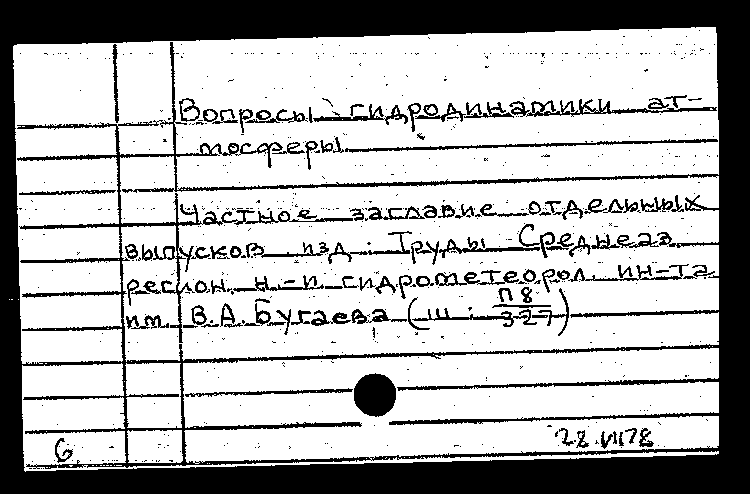 Вопросы гидродинамики ат-
мосферы
Частное заглавие отдельных
выпусков изд.: Труды Среднеаз.
регион. н.-и гидрометеорол. ин-та
им. В.А. Бугаева (Ш : П8/327)
6 28.VII78